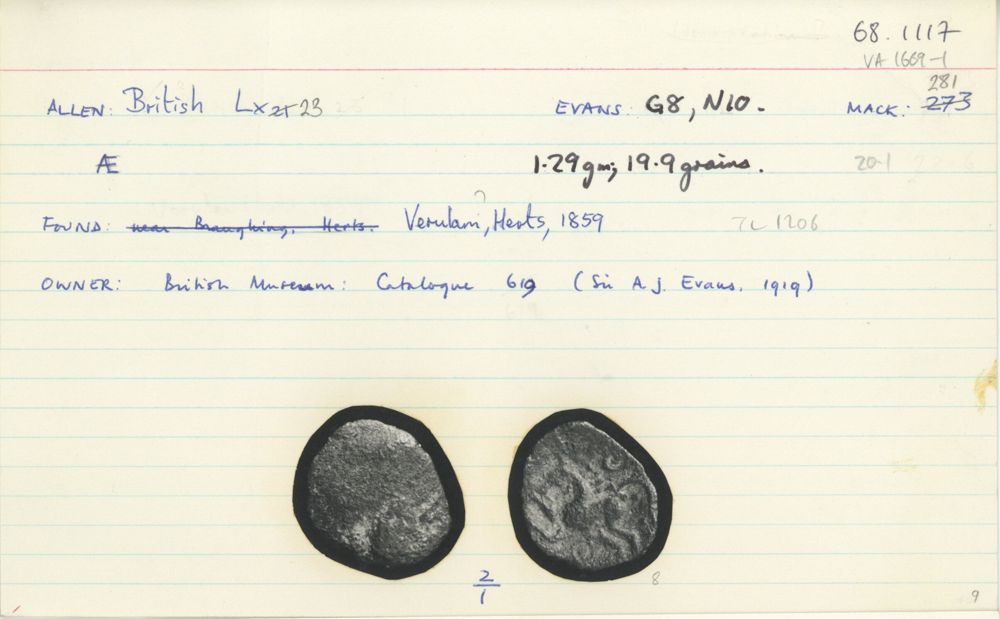 68.1117
VA 1669-1
281
ALLEN: British Lx 23 EVANS: G8, N10. MACK: 273
Æ 1.29 gm; 19.9 grains. 20.1
?
FOUND: near Braughing, Herts. Verulam, Herts, 1859 1206
OWNER: British Museum: Catalogue 619 (Sir A.J. Evans, 1919)
2
1
8
9